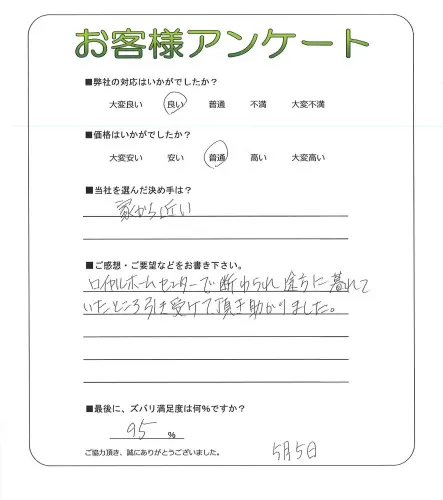 お客様アンケート
■弊社の対応はいかがでしたか?
大変良い 良い 普通 不満 大変不満
■価格はいかがでしたか?
大変安い 安い 普通 高い 大変高い
■当社を選んだ決め手は?
家から近い
■ご感想・ご要望などをお書き下さい。
ロイヤルホームセンターで断わられ途方に暮れて
いたところ引き受けて頂き助かりました。
■最後に、ズバリ満足度は何%ですか?
95 %
ご協力頂き、誠にありがとうございました。
5月5日